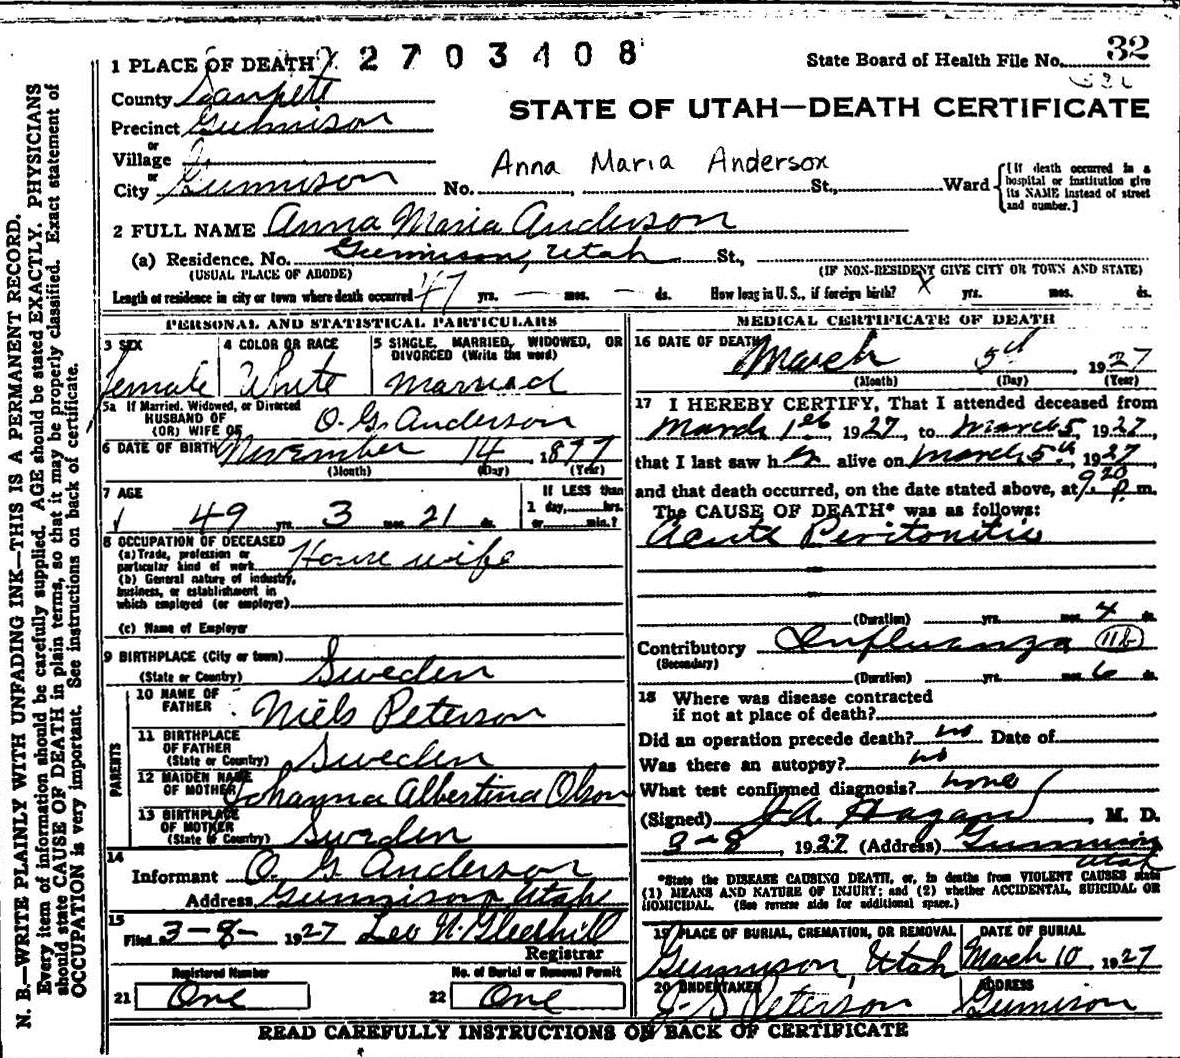 1 PLACE OF DEATH 2703408 State Board of Health File No. 32
County Sanpete
STATE OF UTAH—DEATH CERTIFICATE
Precinct Gunnison
or
Village
or
Anna Maria Anderson
City Gunnison No. St., Ward
[If death occurred in a hospital or institution give its NAME instead of street and number.]
2 FULL NAME Anna Maria Anderson
(a) Residence. No. Gunnison, Utah St.,
(USUAL PLACE OF ABODE) (IF NON-RESIDENT GIVE CITY OR TOWN AND STATE)
Length of residence in city or town where death occurred 47 yrs. — mos. — ds. How long in U.S., if foreign birth? X yrs. mos. ds.
PERSONAL AND STATISTICAL PARTICULARS
3 SEX 4 COLOR OR RACE 5 SINGLE, MARRIED, WIDOWED, OR
DIVORCED (Write the word)
Female White Married
5a If Married, Widowed, or Divorced
HUSBAND OF
(OR) WIFE OF O. G. Anderson
6 DATE OF BIRTH November 14, 1877
(Month) (Day) (Year)
7 AGE
If LESS than
1 day, hrs.
or min.?
49 yrs. 3 mos. 21 ds.
8 OCCUPATION OF DECEASED
(a) Trade, profession or
particular kind of work House wife
(b) General nature of industry,
business, or establishment in
which employed (or employer)
(c) Name of Employer
9 BIRTHPLACE (City or town)
(State or Country) Sweden
PARENTS
10 NAME OF
FATHER Niels Peterson
11 BIRTHPLACE
OF FATHER
(State or Country) Sweden
12 MAIDEN NAME
OF MOTHER Johanna Albertina Olson
13 BIRTHPLACE
OF MOTHER
(State or Country) Sweden
14
Informant O. G. Anderson
Address Gunnison, Utah
15
Filed 3-8- 1927 Leo N. Gledhill
Registrar
Registered Number No. of Burial or Removal Permit
21 One 22 One
MEDICAL CERTIFICATE OF DEATH
16 DATE OF DEATH March 5th 1927
(Month) (Day) (Year)
17 I HEREBY CERTIFY, That I attended deceased from
March 1st, 1927, to March 5, 1927,
that I last saw her alive on March 5th, 1927
and that death occurred, on the date stated above, at 9:20 P. m.
The CAUSE OF DEATH* was as follows:
Acute Peritonitis
(Duration) yrs. mos. 4 ds.
Contributory Influenza 11b
(Secondary)
(Duration) yrs. mos. 6 ds.
18 Where was disease contracted
if not at place of death?
Did an operation precede death? no Date of
Was there an autopsy? no
What test confirmed diagnosis? none
(Signed) J. A. Hagan, M. D.
3-8, 1927 (Address) Gunnison
Utah
*State the DISEASE CAUSING DEATH, or, in deaths from VIOLENT CAUSES state
(1) MEANS AND NATURE OF INJURY; and (2) whether ACCIDENTAL, SUICIDAL OR
HOMICIDAL. (See reverse side for additional space.)
19 PLACE OF BURIAL, CREMATION, OR REMOVAL DATE OF BURIAL
Gunnison, Utah March 10 1927
20 UNDERTAKER ADDRESS
J S Peterson Gunnison
READ CAREFULLY INSTRUCTIONS ON BACK OF CERTIFICATE
N. B.—WRITE PLAINLY WITH UNFADING INK—THIS IS A PERMANENT RECORD.
Every item of information should be carefully supplied. AGE should be stated EXACTLY. PHYSICIANS
should state CAUSE OF DEATH in plain terms, so that it may be properly classified. Exact statement of
OCCUPATION is very important. See instructions on back of certificate.